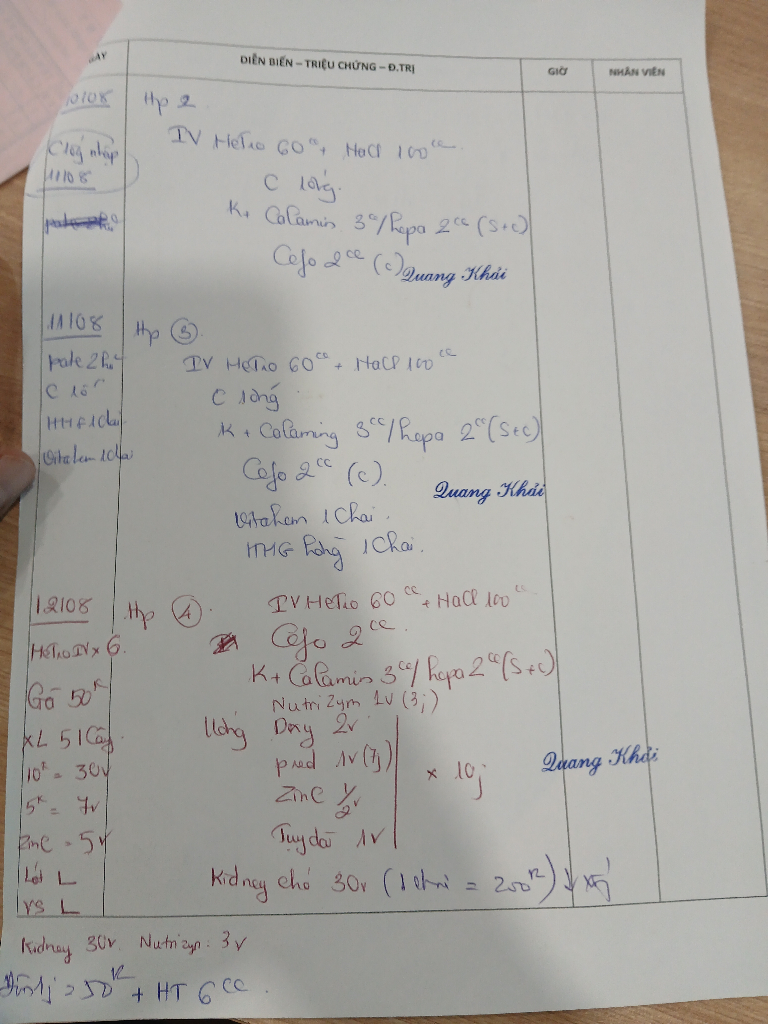 DIỄN BIẾN – TRIỆU CHỨNG – Đ.TRỊ
GIỜ
NHÂN VIÊN
10/08
Hp 2
nhập
11/08
IV Metro 60cc + NaCl 100cc
C lống
K + Calamin 3cc/hepa 2cc (S+C)
Cefo 2cc (c)
Quang Khải
11/08
Hp 3
pate 2h
C lố
HHF 1chai
Vitahem 1chai
IV Metro 60cc + NaCl 100cc
C lống
K + Calaming 3cc/hepa 2cc (S+C)
Cefo 2cc (c).
Quang Khải
Vitahem 1 Chai.
1 Chai.
12/08
Hp 4
Metro IV x 6.
Gà 50K
XL 51 Cây
10K = 30v
5K = 7v
ZinC = 5v
L
VS L
IV Metro 60cc + NaCl 100cc
Cefo 2cc.
K + Calamin 3cc/hepa 2cc (S+C)
Nutrizym 1v (3j)
Uống Doxy 2v
pred 1v (7j)
ZinC 1/2v
1v
x 10j
Quang Khải
Kidney chó 30v (1 = 200K)
Kidney 30v. Nutrizyp: 3v
= 50K + HT 6cc.